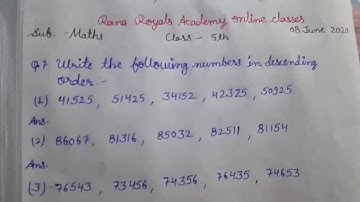 Rana Royals Academy Online classes
Sub. - Maths Class - 5th 08 June 2020
Q.7 Write the following numbers in descending order :-
(1) 41525 , 51425 , 34152 , 42325 , 50925
Ans.
(2) 86067 , 81316 , 85032 , 82511 , 81154
Ans.
(3) 76543 , 73456 , 74356 , 76435 , 74653